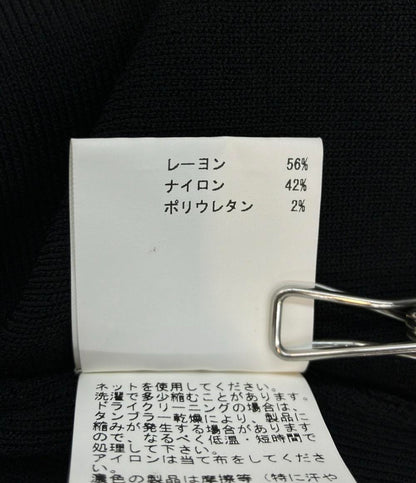 レーヨン 56%
ナイロン 42%
ポリウレタン 2%
ネットを使用してください。
洗濯で多少縮むことがあります。
ドライクリーニングの場合は、
タンブラー乾燥により、製品に
縮みが発生する場合があります
ので、なるべく低温・短時間で
処理して下さい。
アイロンは当て布をしてくださ
い。
濃色の製品は摩擦等（特に汗や